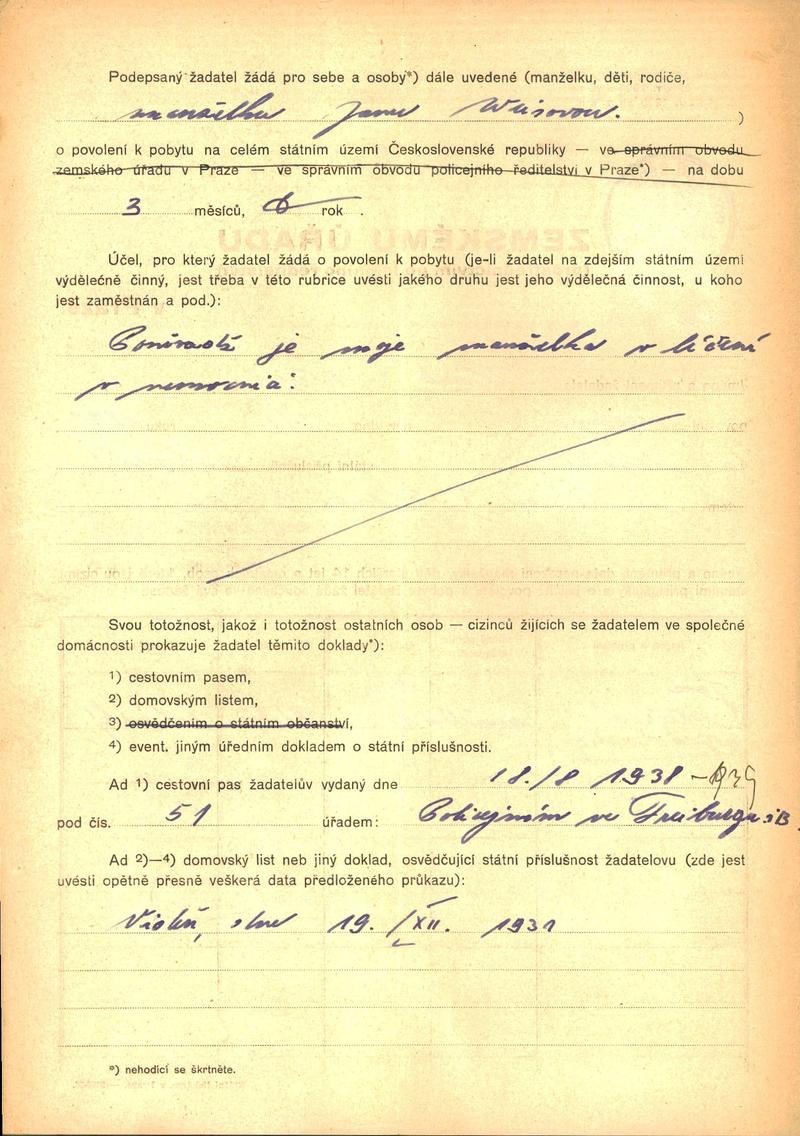 Podepsaný žadatel žádá pro sebe a osoby*) dále uvedené (manželku, děti, rodiče,
manželku )
o povolení k pobytu na celém státním území Československé republiky — ve správním obvodu
zemského úřadu v Praze — ve správním obvodu policejního ředitelství v Praze*) — na dobu
3 měsíců, rok .
Účel, pro který žadatel žádá o povolení k pobytu (je-li žadatel na zdejším státním území
výdělečně činný, jest třeba v této rubrice uvésti jakého druhu jest jeho výdělečná činnost, u koho
jest zaměstnán a pod.):
je moje manželka v léčení
v
Svou totožnost, jakož i totožnost ostatních osob — cizinců žijících se žadatelem ve společné
domácnosti prokazuje žadatel těmito doklady*):
1) cestovním pasem,
2) domovským listem,
3) osvědčením o státním občanství,
4) event. jiným úředním dokladem o státní příslušnosti.
Ad 1) cestovní pas žadatelův vydaný dne 18./8 1938
pod čís. 51 úřadem: ve Freiburgu i B.
Ad 2)—4) domovský list neb jiný doklad, osvědčující státní příslušnost žadatelovu (zde jest
uvésti opětně přesně veškerá data předloženého průkazu):
dne 19. /XII. 1931
*) nehodící se škrtněte.